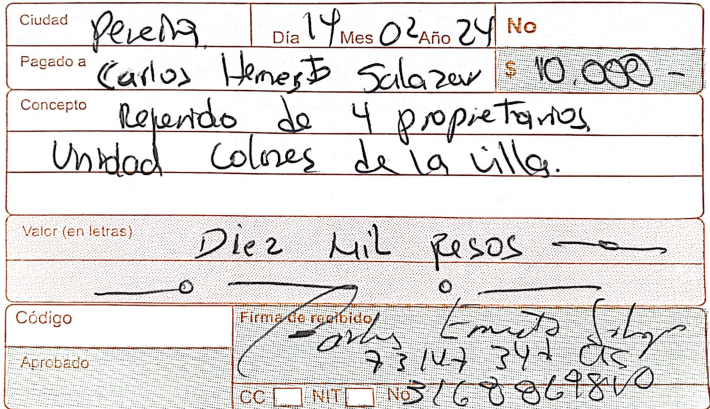 Ciudad Pereira Día 14 Mes 02 Año 24 No
Pagado a Carlos Hernesto Salazar $ 10.000 -
Concepto Referido de 4 propietarios
Unidad Colores de la villa.
Valor (en letras) Diez Mil pesos
Código Firma de recibido
Carlos Ernesto
73147347
Aprobado
CC NIT No